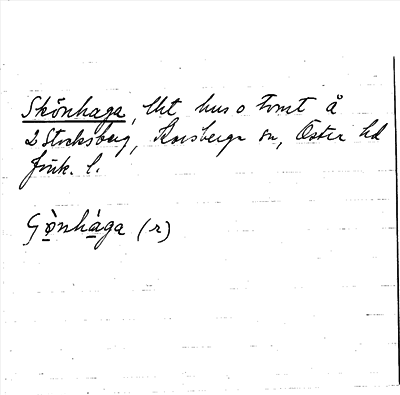 Skönhaga, lht hus o tomt å
2 Stocksberg, Korsberga sn, Östra hd
Jönk. l.
Gö̀nhàga (r)